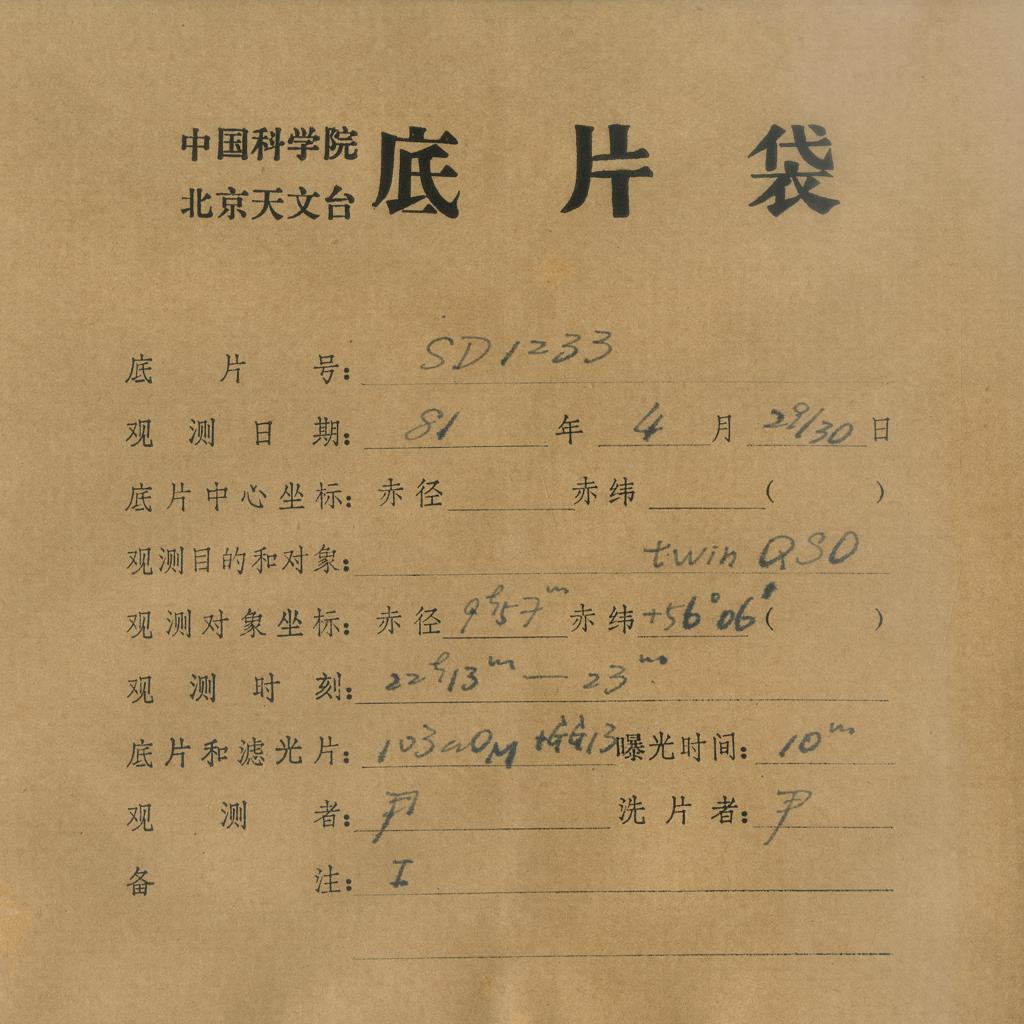 中国科学院
北京天文台
底片袋
底片号： SD1233
观测日期： 81 年 4 月 29/30 日
底片中心坐标： 赤径 赤纬 ( )
观测目的和对象： twin QSO
观测对象坐标： 赤径 9h57m 赤纬 +56°06′ ( )
观测时刻： 22h13m — 23m
底片和滤光片： 103aO +GG13 曝光时间： 10m
观测者： 尹 洗片者： 尹
备注： I